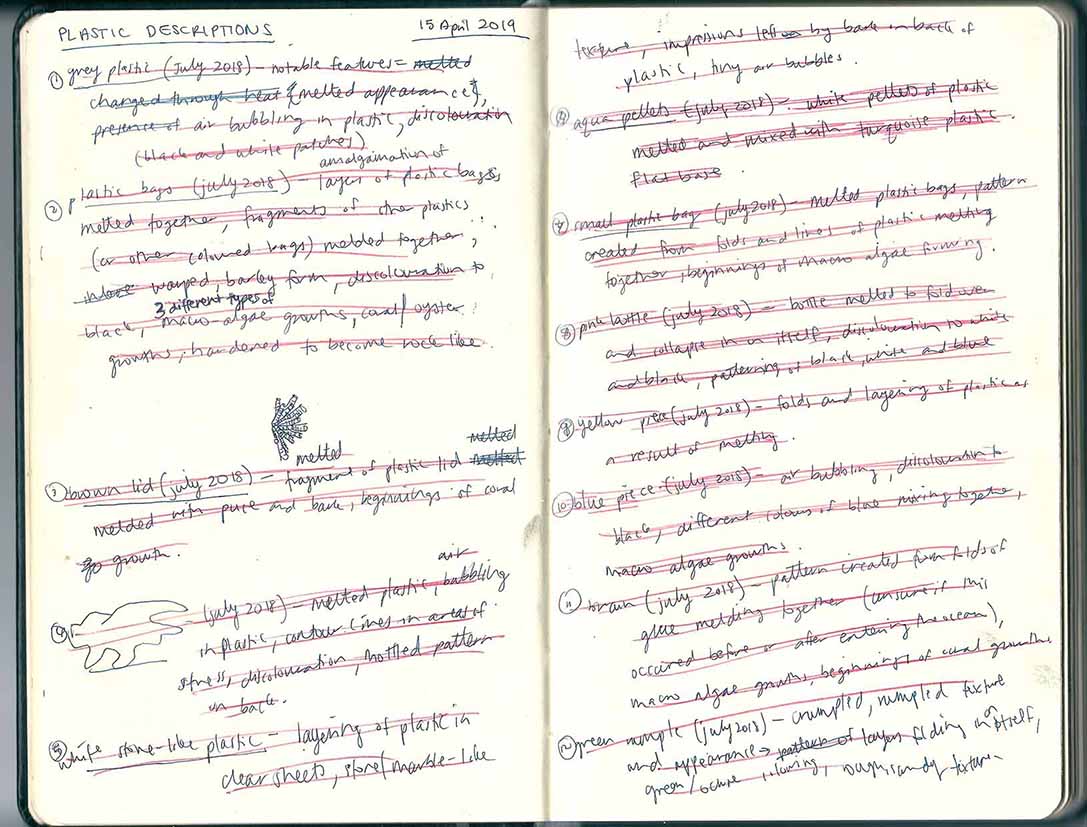 PLASTIC DESCRIPTIONS 15 April 2019
① grey plastic (July 2018) – notable features = melted
changed through heat {melted appearance},
presence of air bubbling in plastic, discolouration
(black and white patches)
amalgamation of
② plastic bags (july 2018) – layers of plastic bags,
melted together, fragments of other plastics
(or other coloured bags) melded together,
warped, barley form, discolouration to
3 different types of
black, macro-algae growths, coral/oyster
growths, hardened to become rock like.
melted melted
③ brown lid (july 2018) – fragment of plastic lid melted
melded with pure and bark, beginnings of coral
go growth.
air
④ (july 2018) – melted plastic, bubbling
in plastic, contour lines in areas of
stress, discolouration, mottled pattern
on back.
⑤ white stone-like plastic – layering of plastic in
clear sheets, stone/marble-like
texture, impressions left by bark on back of
plastic, tiny air bubbles.
aqua pellets (july 2018) – white pellets of plastic
melted and mixed with turquoise plastic.
flat base.
⑦ small plastic bag (july 2018) – melted plastic bags, pattern
created from folds and lines of plastic melting
together, beginnings of macro algae forming.
⑧ pink bottle (july 2018) – bottle melted to fold over
and collapse in on itself, discolouration to white
and black, patterning of black, white and blue
⑨ yellow piece (july 2018) – folds and layering of plastic as
a result of melting.
⑩ blue piece (july 2018) – air bubbling, discolouration to
black, different colours of blue mixing together,
macro algae growths.
⑪ brain (july 2018) – pattern created from folds of
glue melding together (unsure if this
occured before or after entering the ocean),
macro algae growths, beginnings of coral growths
⑫ green rumple (july 2018) – crumpled, rumpled texture
and appearance → pattern of layers folding in on itself,
green/ochre colouring, rough sandy texture